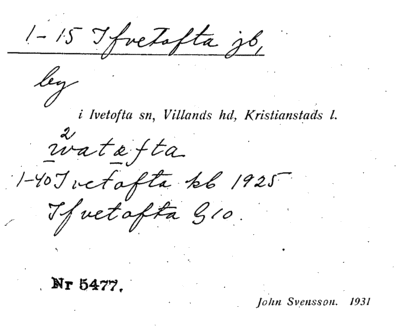 1-15 Ifvetofta jb,
by
i Ivetofta sn, Villands hd, Kristianstads l.
1-40 Ivetofta kb 1925
Ifvetofta G10.
Nr 5477.
John Svensson. 1931